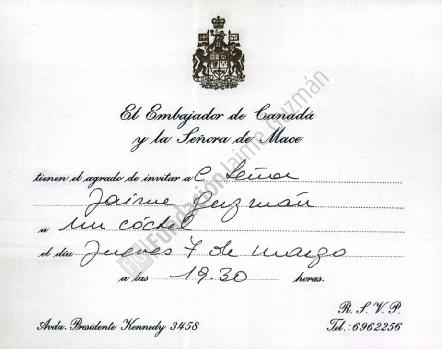 El Embajador de Canadá
y la Señora de Mace
tienen el agrado de invitar a l Señor
Jaime Guzmán
a un cóctel
el día Jueves 7 de marzo
a las 19.30 horas.
R. S. V. P.
Avda. Presidente Kennedy 3458 Tel.: 6962256
Fundación Jaime Guzmán